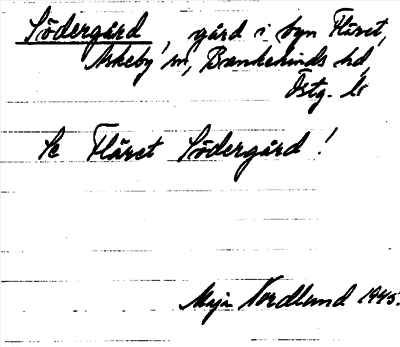 Södergård, gård i byn Fläret,
Askeby sn, Bankekinds hd,
Östg. l.
Se Fläret Södergård!
Maja Nordlund 1945.